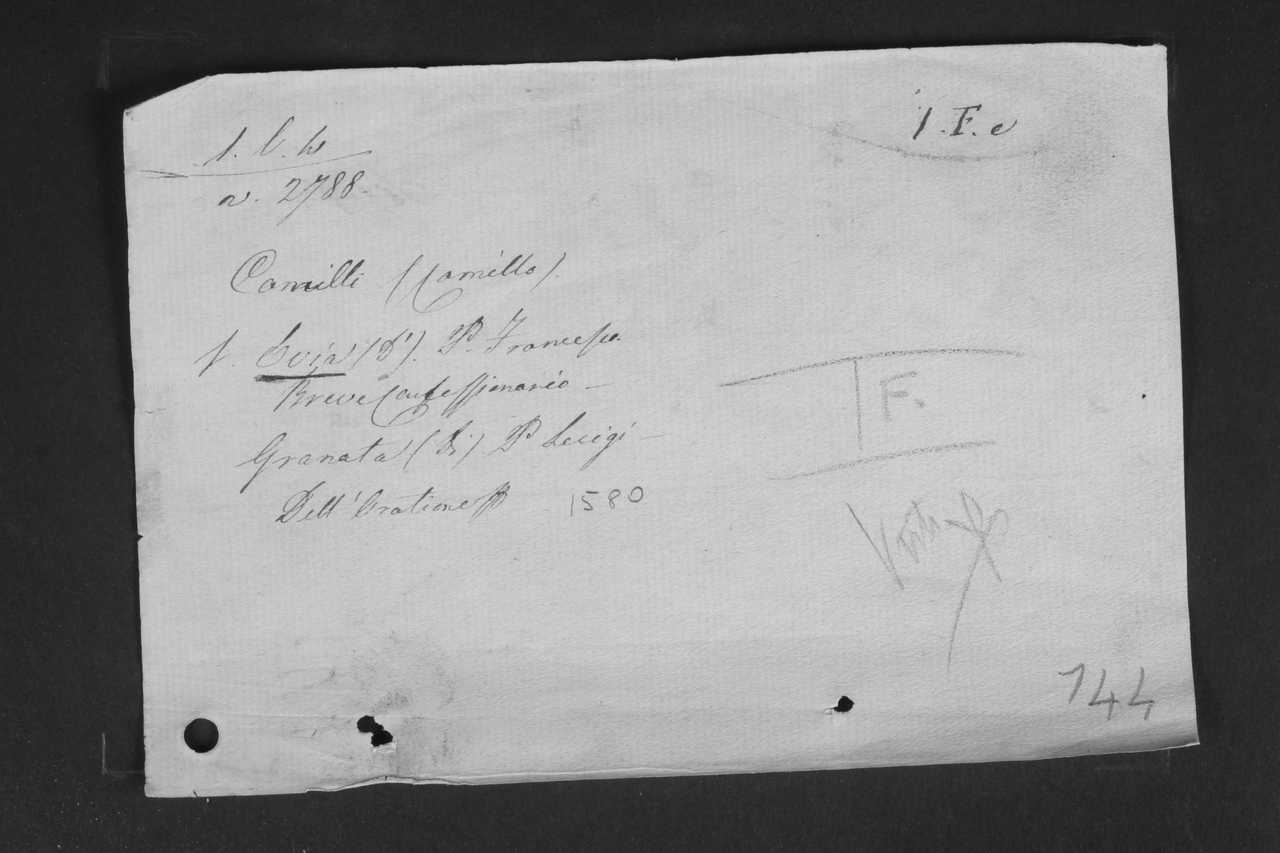 1. F. e
n. 2788
Camilli (Camillo).
Evia (d'). P. Francesco
Breve Confessionario –
Granata (Di) P. Luigi –
Dell' Oratione 1580
F.
744